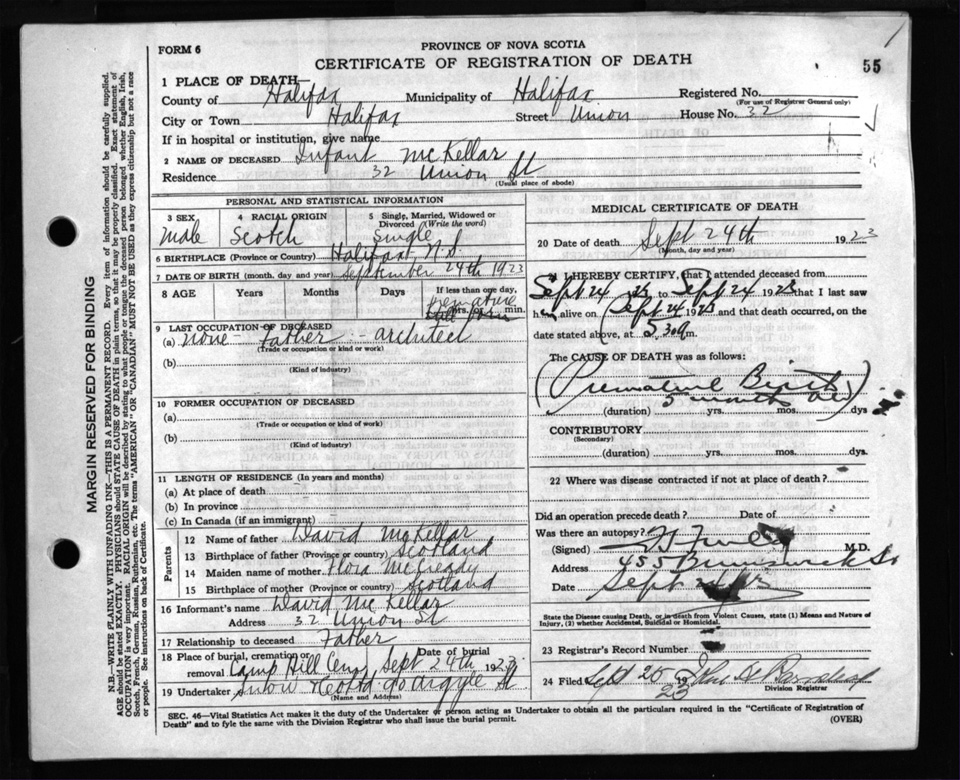 FORM 6
PROVINCE OF NOVA SCOTIA
CERTIFICATE OF REGISTRATION OF DEATH
55
1 PLACE OF DEATH—
County of Halifax Municipality of Halifax Registered No.
(For use of Registrar General only)
City or Town Halifax Street Union House No. 32
If in hospital or institution, give name
2 NAME OF DECEASED Infant McKellar
Residence 32 Union St
(Usual place of abode)
PERSONAL AND STATISTICAL INFORMATION
3 SEX 4 RACIAL ORIGIN 5 Single, Married, Widowed or Divorced (Write the word)
Male Scotch Single
6 BIRTHPLACE (Province or Country) Halifax, N.S.
7 DATE OF BIRTH (month, day and year) September 24th 1923
8 AGE Years Months Days If less than one day,
hrs. or min.
premature
9 LAST OCCUPATION OF DECEASED
(a) none Father architect
(Trade or occupation or kind of work)
(b)
(Kind of industry)
10 FORMER OCCUPATION OF DECEASED
(a)
(Trade or occupation or kind of work)
(b)
(Kind of industry)
11 LENGTH OF RESIDENCE (In years and months)
(a) At place of death
(b) In province
(c) In Canada (if an immigrant)
Parents
12 Name of father David McKellar
13 Birthplace of father (Province or country) Scotland
14 Maiden name of mother Flora McCready
15 Birthplace of mother (Province or country) Scotland
16 Informant's name David McKellar
Address 32 Union St
17 Relationship to deceased Father
18 Place of burial, cremation or removal Camp Hill Cem Date of burial Sept 24th 1923
19 Undertaker Snow &Co Ltd 90 Argyle St
(Name and Address)
MEDICAL CERTIFICATE OF DEATH
20 Date of death Sept 24th 1923
(Month, day and year)
21 I HEREBY CERTIFY, that I attended deceased from
Sept 24 23 to Sept 24 1923 that I last saw
h alive on Sept 24 1923 and that death occurred, on
date stated above, at 5.30 a m.
The CAUSE OF DEATH was as follows:
Premature Birth
5 months
(duration) yrs. mos. dys
CONTRIBUTORY
(Secondary)
(duration) yrs. mos. dys.
22 Where was disease contracted if not at place of death?
Did an operation precede death? Date of
Was there an autopsy?
(Signed) M.D.
Address 455 Brunswick St
Date Sept
State the Disease causing Death, or in death from Violent Causes, state (1) Means and Nature of Injury, (2) whether Accidental, Suicidal or Homicidal.
23 Registrar's Record Number
24 Filed Sept 25 1923
Division Registrar
SEC. 46—Vital Statistics Act makes it the duty of the Undertaker or person acting as Undertaker to obtain all the particulars required in the "Certificate of Registration of
Death" and to fyle the same with the Division Registrar who shall issue the burial permit. (OVER)
MARGIN RESERVED FOR BINDING
N.B.—WRITE PLAINLY WITH UNFADING INK—THIS IS A PERMANENT RECORD. Every item of information should be carefully supplied.
AGE should be stated EXACTLY. PHYSICIANS should STATE CAUSE OF DEATH in plain terms, so that it may be properly classified. Exact statement of
OCCUPATION is very important. RACIAL ORIGIN will be described by stating to what people or tongue the deceased person belonged whether English, Irish,
Scotch, French, German, Russian, Ruthenian, etc. The terms "AMERICAN" OR "CANADIAN" MUST NOT BE USED as they express citizenship but not a race
or people. See instructions on back of Certificate.